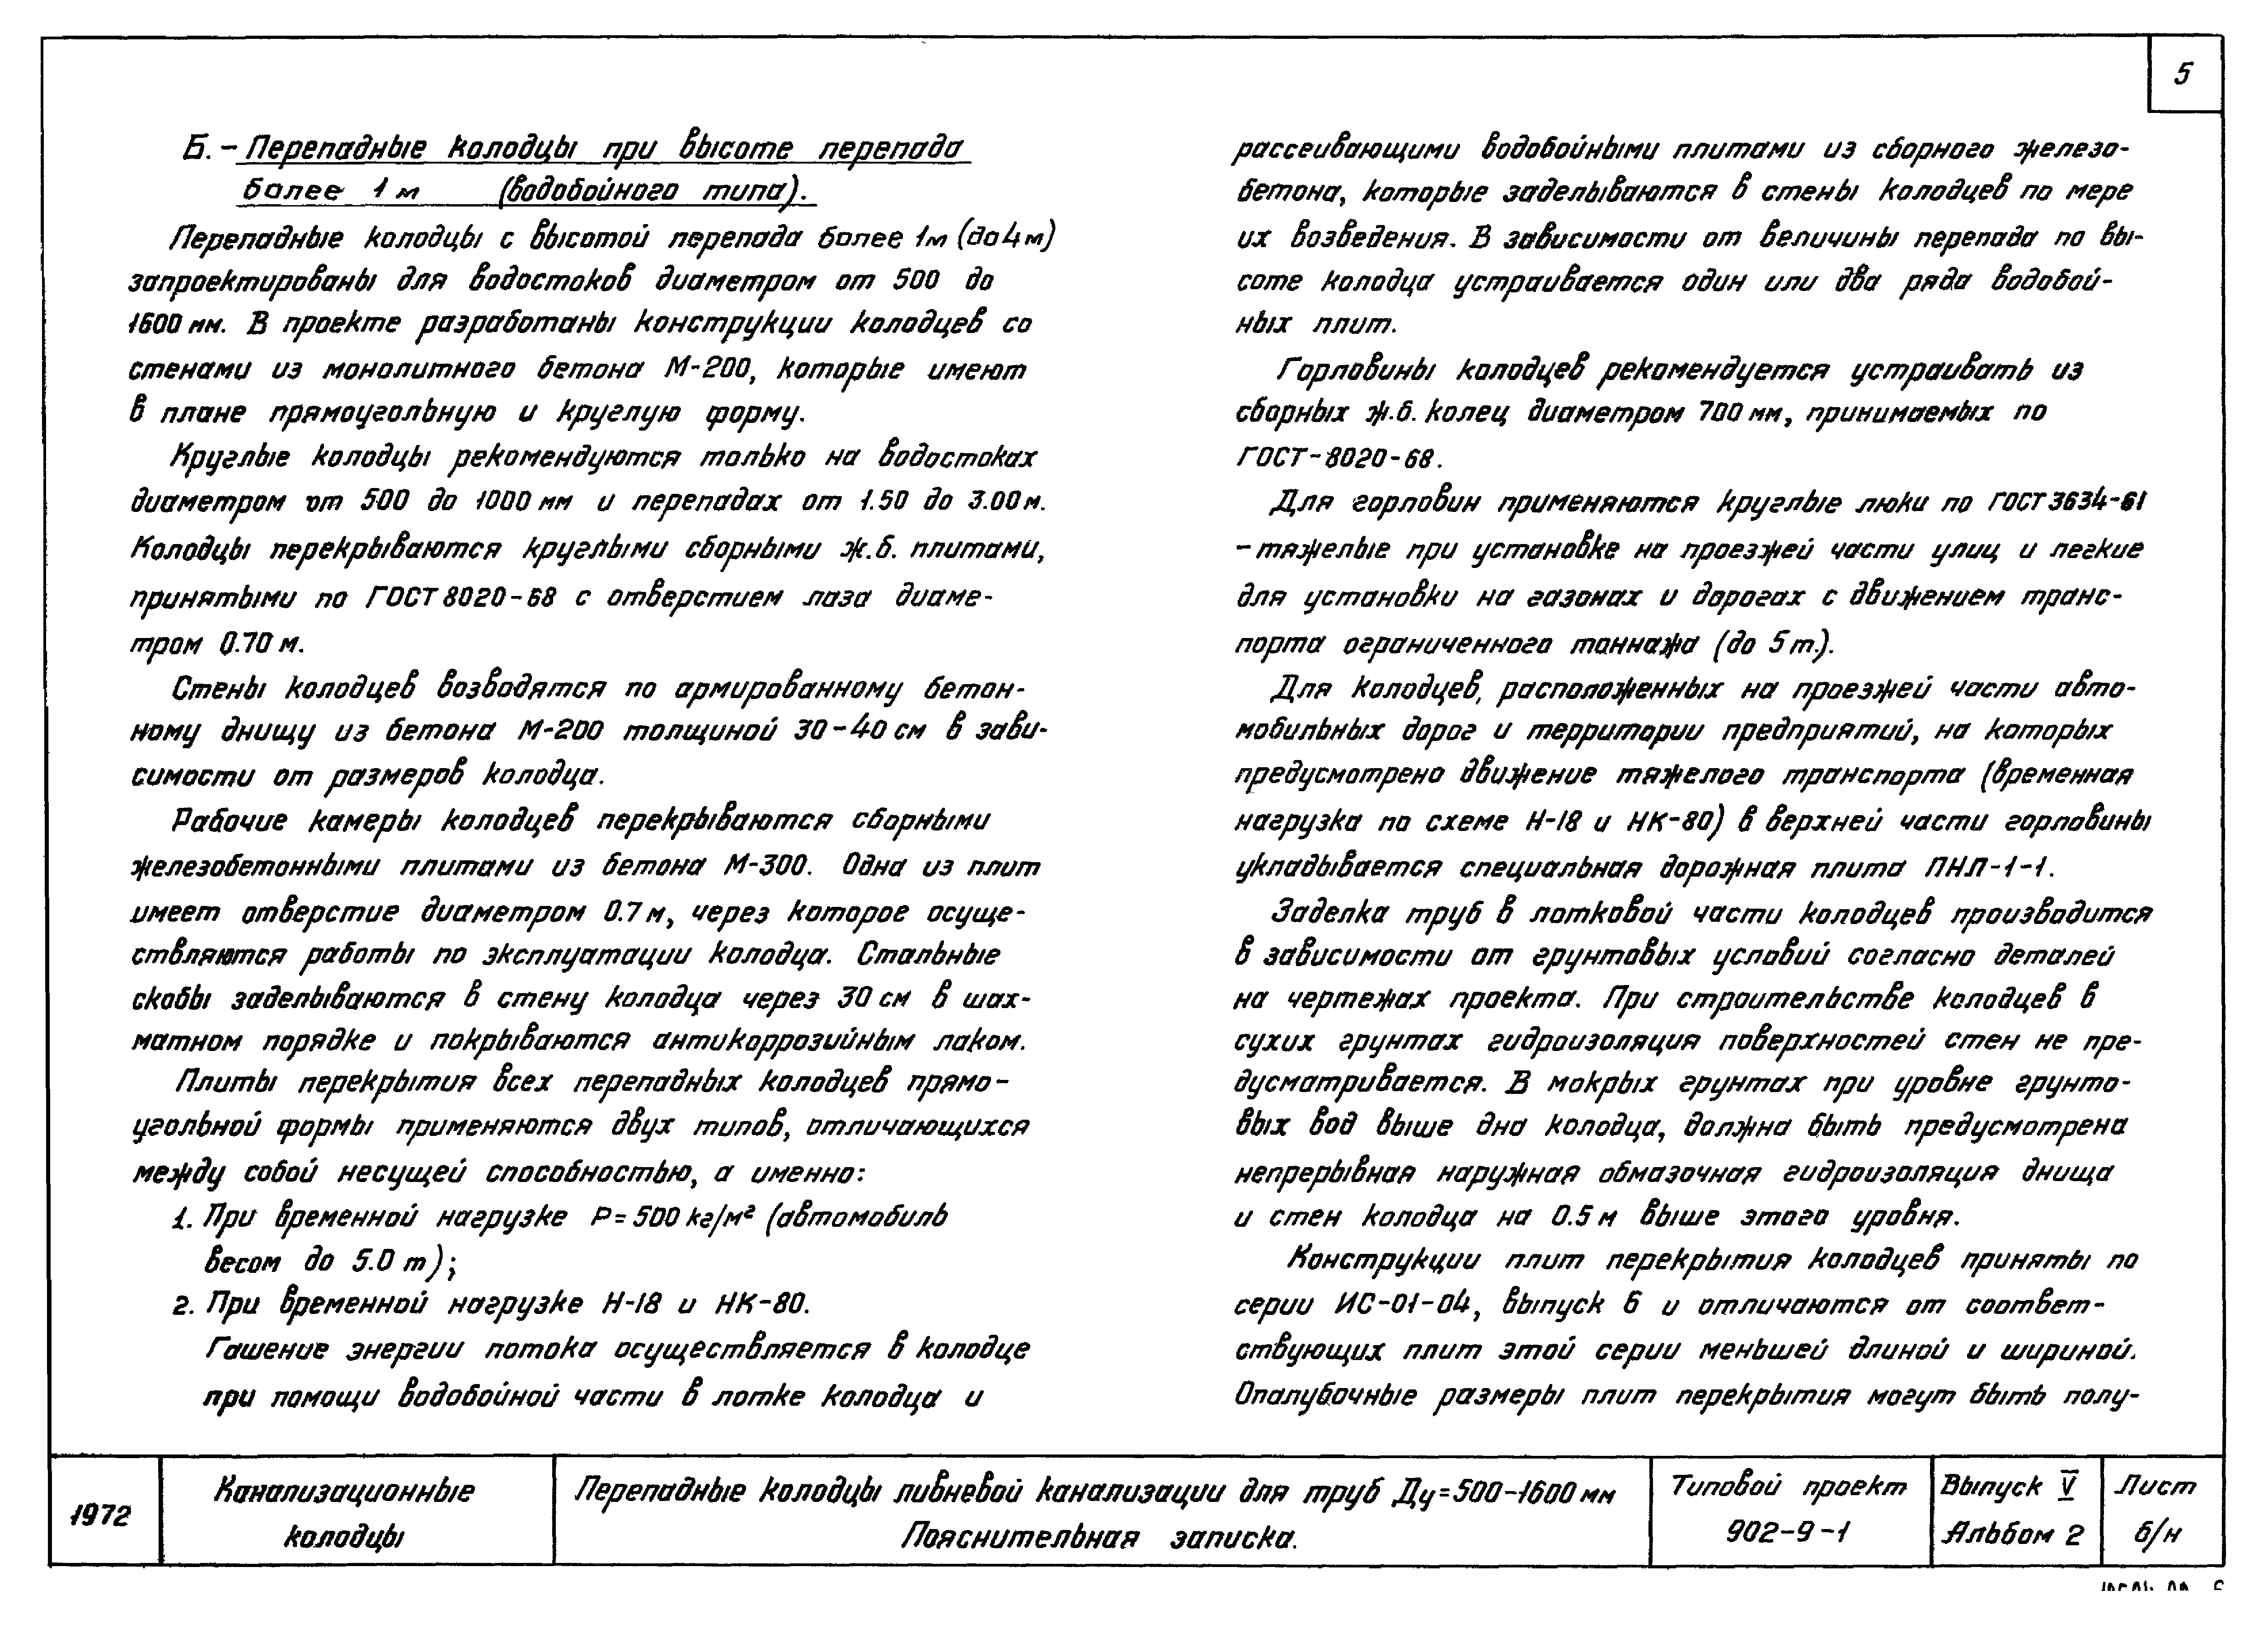 5
Б. - Перепадные колодцы при высоте перепада
более 1 м (водобойного типа).
Перепадные колодцы с высотой перепада более 1м (до 4м)
запроектированы для водостоков диаметром от 500 до
1600 мм. В проекте разработаны конструкции колодцев со
стенами из монолитного бетона М-200, которые имеют
в плане прямоугольную и круглую форму.
Круглые колодцы рекомендуются только на водостоках
диаметром от 500 до 1000 мм и перепадах от 1.50 до 3.00 м.
Колодцы перекрываются круглыми сборными ж.б. плитами,
принятыми по ГОСТ 8020-68 с отверстием лаза диаме-
тром 0.70 м.
Стены колодцев возводятся по армированному бетон-
ному днищу из бетона М-200 толщиной 30-40 см в зави-
симости от размеров колодца.
Рабочие камеры колодцев перекрываются сборными
железобетонными плитами из бетона М-300. Одна из плит
имеет отверстие диаметром 0.7 м, через которое осуще-
ствляются работы по эксплуатации колодца. Стальные
скобы заделываются в стену колодца через 30 см в шах-
матном порядке и покрываются антикоррозийным лаком.
Плиты перекрытия всех перепадных колодцев прямо-
угольной формы применяются двух типов, отличающихся
между собой несущей способностью, а именно:
1. При временной нагрузке Р= 500 кг/м² (автомобиль
весом до 5.0 т);
2. При временной нагрузке Н-18 и НК-80.
Гашение энергии потока осуществляется в колодце
при помощи водобойной части в лотке колодца и
рассеивающими водобойными плитами из сборного железо-
бетона, которые заделываются в стены колодцев по мере
их возведения. В зависимости от величины перепада по вы-
соте колодца устраивается один или два ряда водобой-
ных плит.
Горловины колодцев рекомендуется устраивать из
сборных ж.б. колец диаметром 700 мм, принимаемых по
ГОСТ-8020-68.
Для горловин применяются круглые люки по ГОСТ 3634-61
- тяжелые при установке на проезжей части улиц и легкие
для установки на газонах и дорогах с движением транс-
порта ограниченного тоннажа (до 5 т.).
Для колодцев, расположенных на проезжей части авто-
мобильных дорог и территории предприятий, на которых
предусмотрено движение тяжелого транспорта (временная
нагрузка по схеме Н-18 и НК-80) в верхней части горловины
укладывается специальная дорожная плита ПНЛ-1-1.
Заделка труб в лотковой части колодцев производится
в зависимости от грунтовых условий согласно деталей
на чертежах проекта. При строительстве колодцев в
сухих грунтах гидроизоляция поверхностей стен не пре-
дусматривается. В мокрых грунтах при уровне грунто-
вых вод выше дна колодца, должна быть предусмотрена
непрерывная наружная обмазочная гидроизоляция днища
и стен колодца на 0.5 м выше этого уровня.
Конструкции плит перекрытия колодцев приняты по
серии ИС-01-04, выпуск 6 и отличаются от соответ-
ствующих плит этой серии меньшей длиной и шириной.
Опалубочные размеры плит перекрытия могут быть полу-
1972
Канализационные
колодцы
Перепадные колодцы ливневой канализации для труб Ду=500-1600 мм
Пояснительная записка.
Типовой проект
902-9-1
Выпуск V
Альбом 2
Лист
б/н